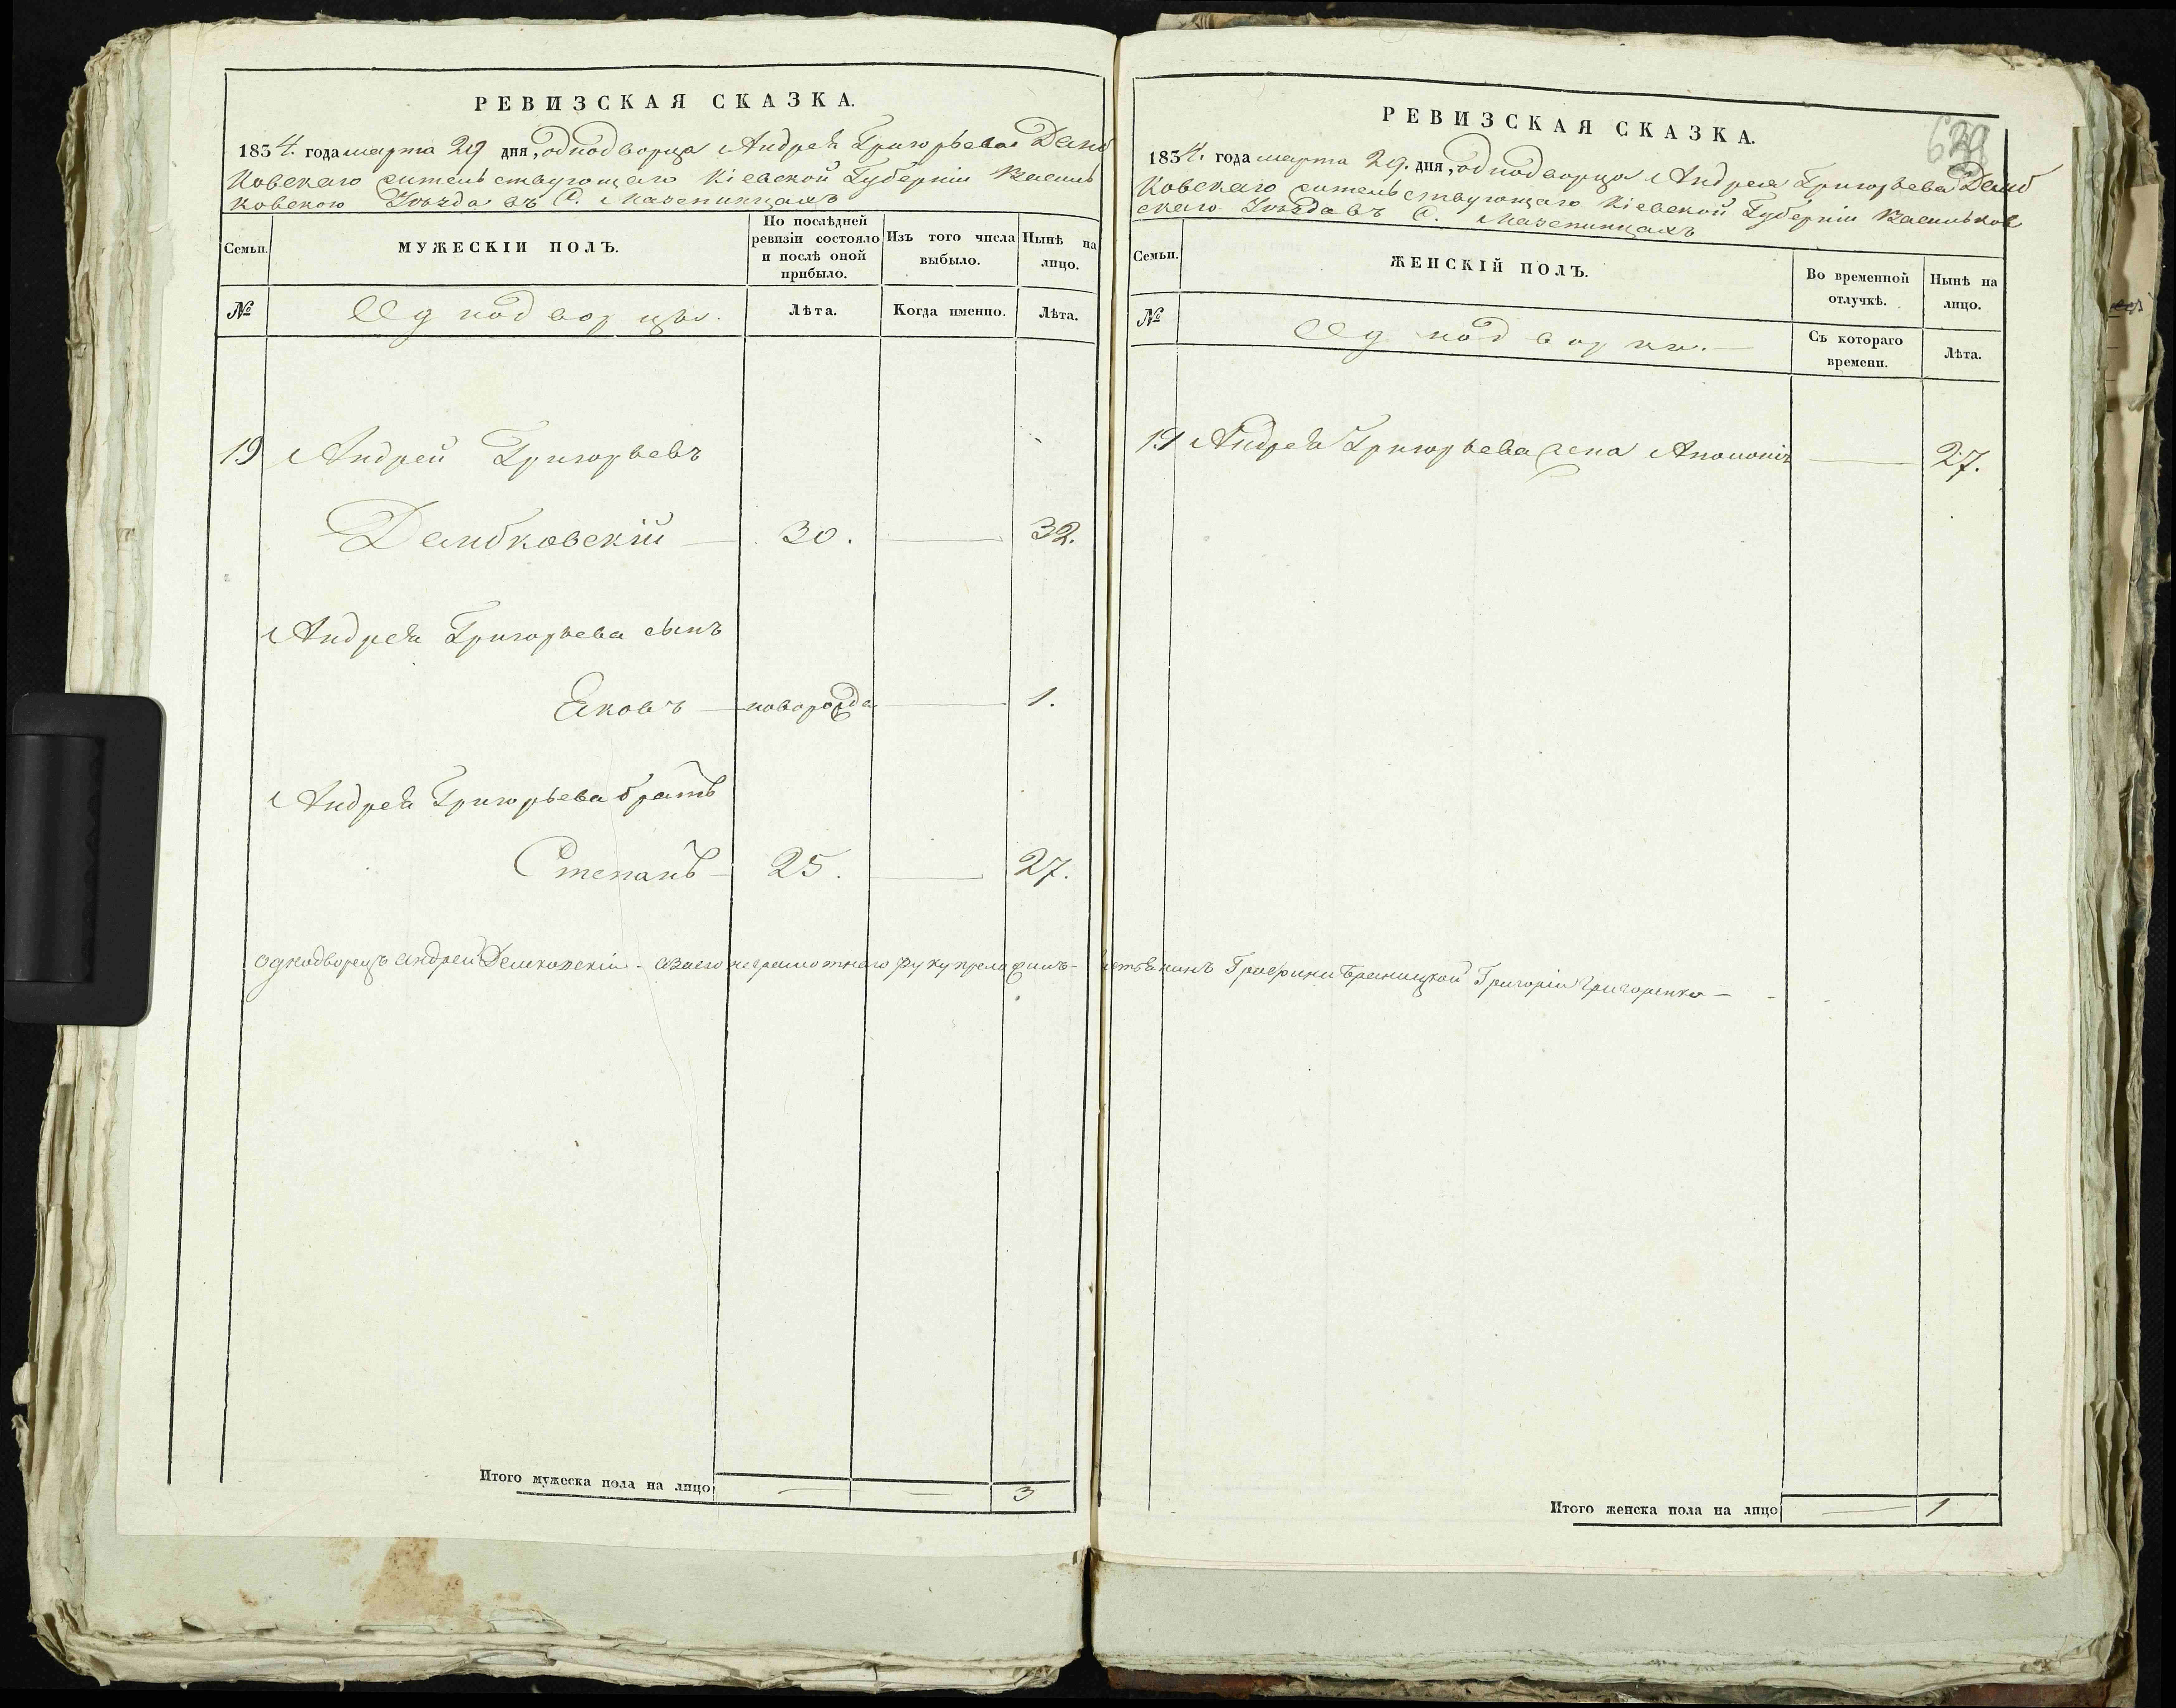 РЕВИЗСКАЯ СКАЗКА.
1834. года марта 29 дня, однодворца Андрея Григорьева Демб
ковскаго жительствующаго Кіевской Губерніи Василь
ковского Уѣзда въ С. Мазепинцахъ
Семьи.
МУЖЕСКІЙ ПОЛЪ.
По послѣдней ревизіи состояло и послѣ оной прибыло.
Изъ того числа выбыло.
Нынѣ на лицо.
№
Однодворцы.
Лѣта.
Когда именно.
Лѣта.
19 Андрей Григорьевъ
Дембковскій — 30. — 32.
Андрея Григорьева сынъ
Яковъ — оворожде — 1.
Андрея Григорьева братъ
Степанъ — 25. — 27.
однодворецъ андрей Демковскій - азаего неграмотнаго руку прило
Итого мужеска пола на лицо — — 3
РЕВИЗСКАЯ СКАЗКА.
1834. года марта 29. дня, однодворца Андрея Григорьева Демб
ковскаго жительствующаго Кіевской Губерніи Васильков
скаго Уѣзда въ С. Мазепинцахъ
Семьи.
ЖЕНСКІЙ ПОЛЪ.
Во временной отлучкѣ.
Нынѣ на лицо.
№
Однодворки. —
Съ котораго времени.
Лѣта.
19 Андрея Григорьева жена Аполонія — 27.
Графини Браницкой Григорій Григоренко — - -
Итого женска пола на лицо — 1